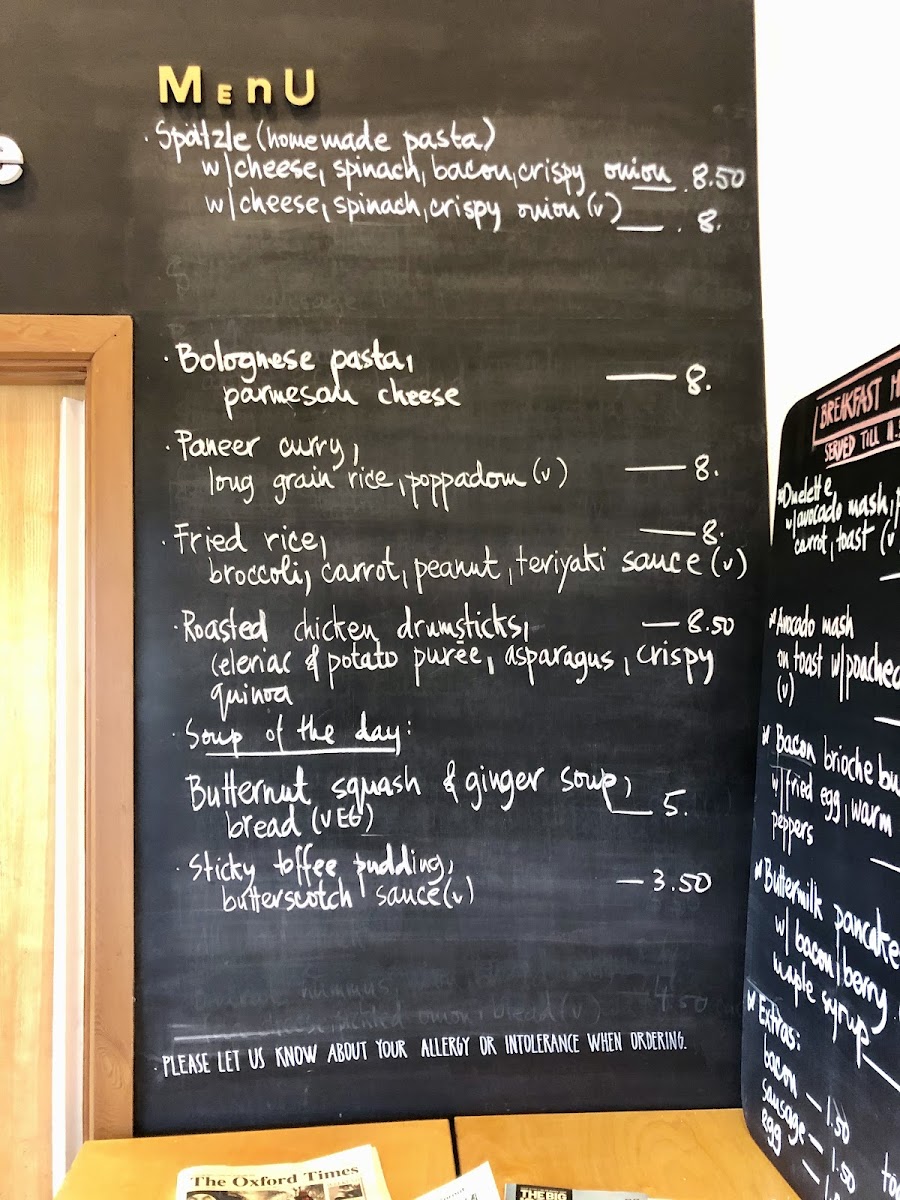 MEnU
· Spätzle (homemade pasta)
w/cheese, spinach, bacon, crispy onion 8.50
w/cheese, spinach, crispy onion (v) — . 8.
· Bolognese pasta, — 8.
parmesan cheese
· Paneer curry, — 8.
long grain rice, poppadom (v)
· Fried rice, — 8.
broccoli, carrot, peanut, teriyaki sauce (v)
· Roasted chicken drumsticks, — 8.50
celeriac & potato purée, asparagus, crispy
quinoa
· Soup of the day:
Butternut squash & ginger soup, — 5.
bread (VEG)
· Sticky toffee pudding, — 3.50
butterscotch sauce (v)
hummus,
onion, bread (v) 4.50
· PLEASE LET US KNOW ABOUT YOUR ALLERGY OR INTOLERANCE WHEN ORDERING.
BREAKFAST
SERVED TILL
Omelette
w/avocado mash,
carrot, toast (v
Avocado mash
on toast w/poached
(v)
Bacon brioche
w/fried egg, warm
peppers
Buttermilk pancake
w/ bacon, berry
maple syrup
Extras:
bacon — 1.50
sausage — 1.50
egg —
The Oxford Times
THE BIG